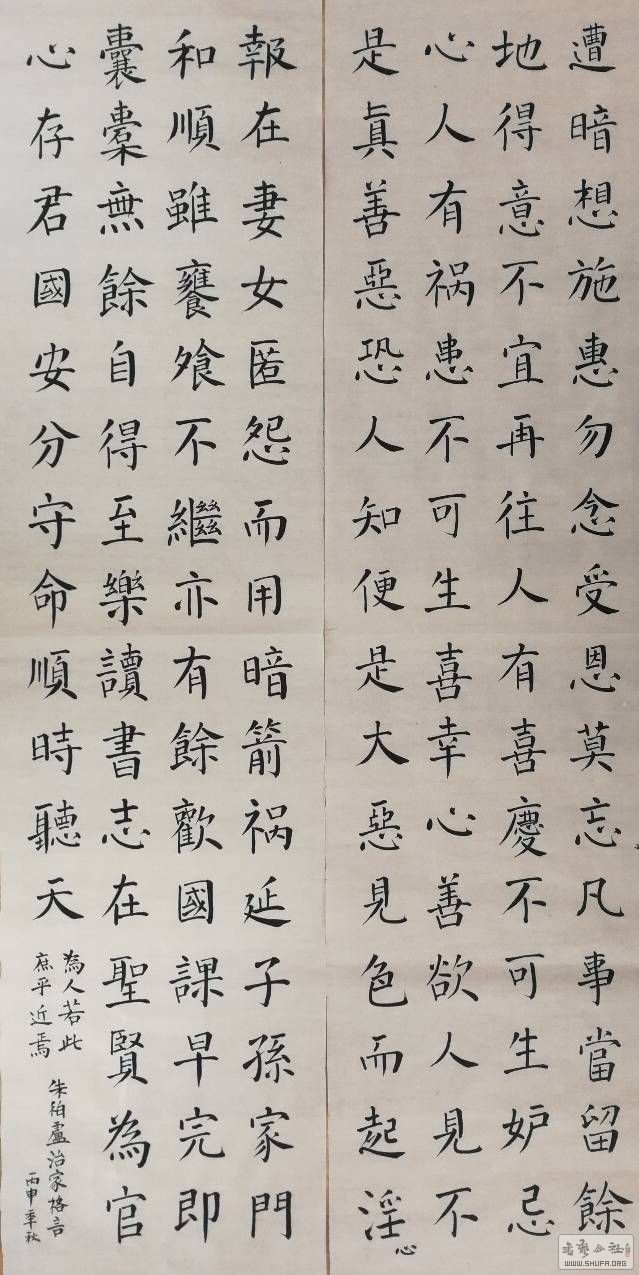 遭暗想施惠勿念受恩莫忘凡事當留餘
地得意不宜再往人有喜慶不可生妒忌
心人有祸患不可生喜幸心善欲人見不
是真善惡恐人知便是大惡見色而起淫心
報在妻女匿怨而用暗箭祸延子孫家門
和順雖饔飧不繼亦有餘歡國課早完即
囊橐無餘自得至樂讀書志在聖賢為官
心存君國安分守命順時聽天
為人若此
庶乎近焉
朱柏盧治家格言
丙申季秋
書藝公社
WWW.SHUFA.ORG